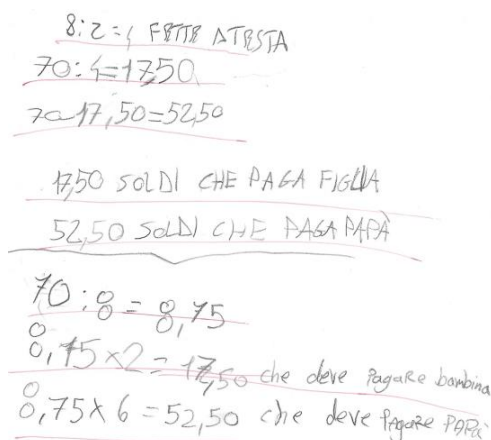 8:2=4 FETTE A TESTA
70:4=17,50
70-17,50=52,50
17,50 SOLDI CHE PAGA FIGLIA
52,50 SOLDI CHE PAGA PAPÀ
70:8=8,75
8,75×2=17,50 che deve pagare bambina
8,75×6=52,50 che deve pagare PAPà